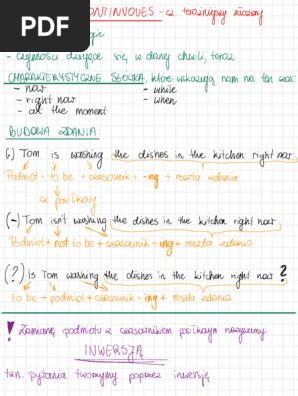 PDF
CONTINUOUES - cz. teraźniejszy złożony
- czynności dziejące się, w danej chwili, teraz
CHARAKTERYSTYCZNE SŁÓWKA, które wskazują nam na ten czas:
- now - while
- right now - when
- at the moment
BUDOWA ZDANIA:
(.) Tom is washing the dishes in the kitchen right now.
Podmiot + to be + czasownik + -ing + reszta zdania
cz. posiłkowy
(-) Tom isn't washing the dishes in the kitchen right now
Podmiot + not to be + czasownik + ing + reszta zdania
(?) Is Tom washing the dishes in the kitchen right now?
to be + podmiot + czasownik + ing + reszta zdania
! Zamianę podmiotu z czasownikiem posiłkowym nazywamy
INWERSJĄ
tzn. pytania tworzymy poprzez inwersję.